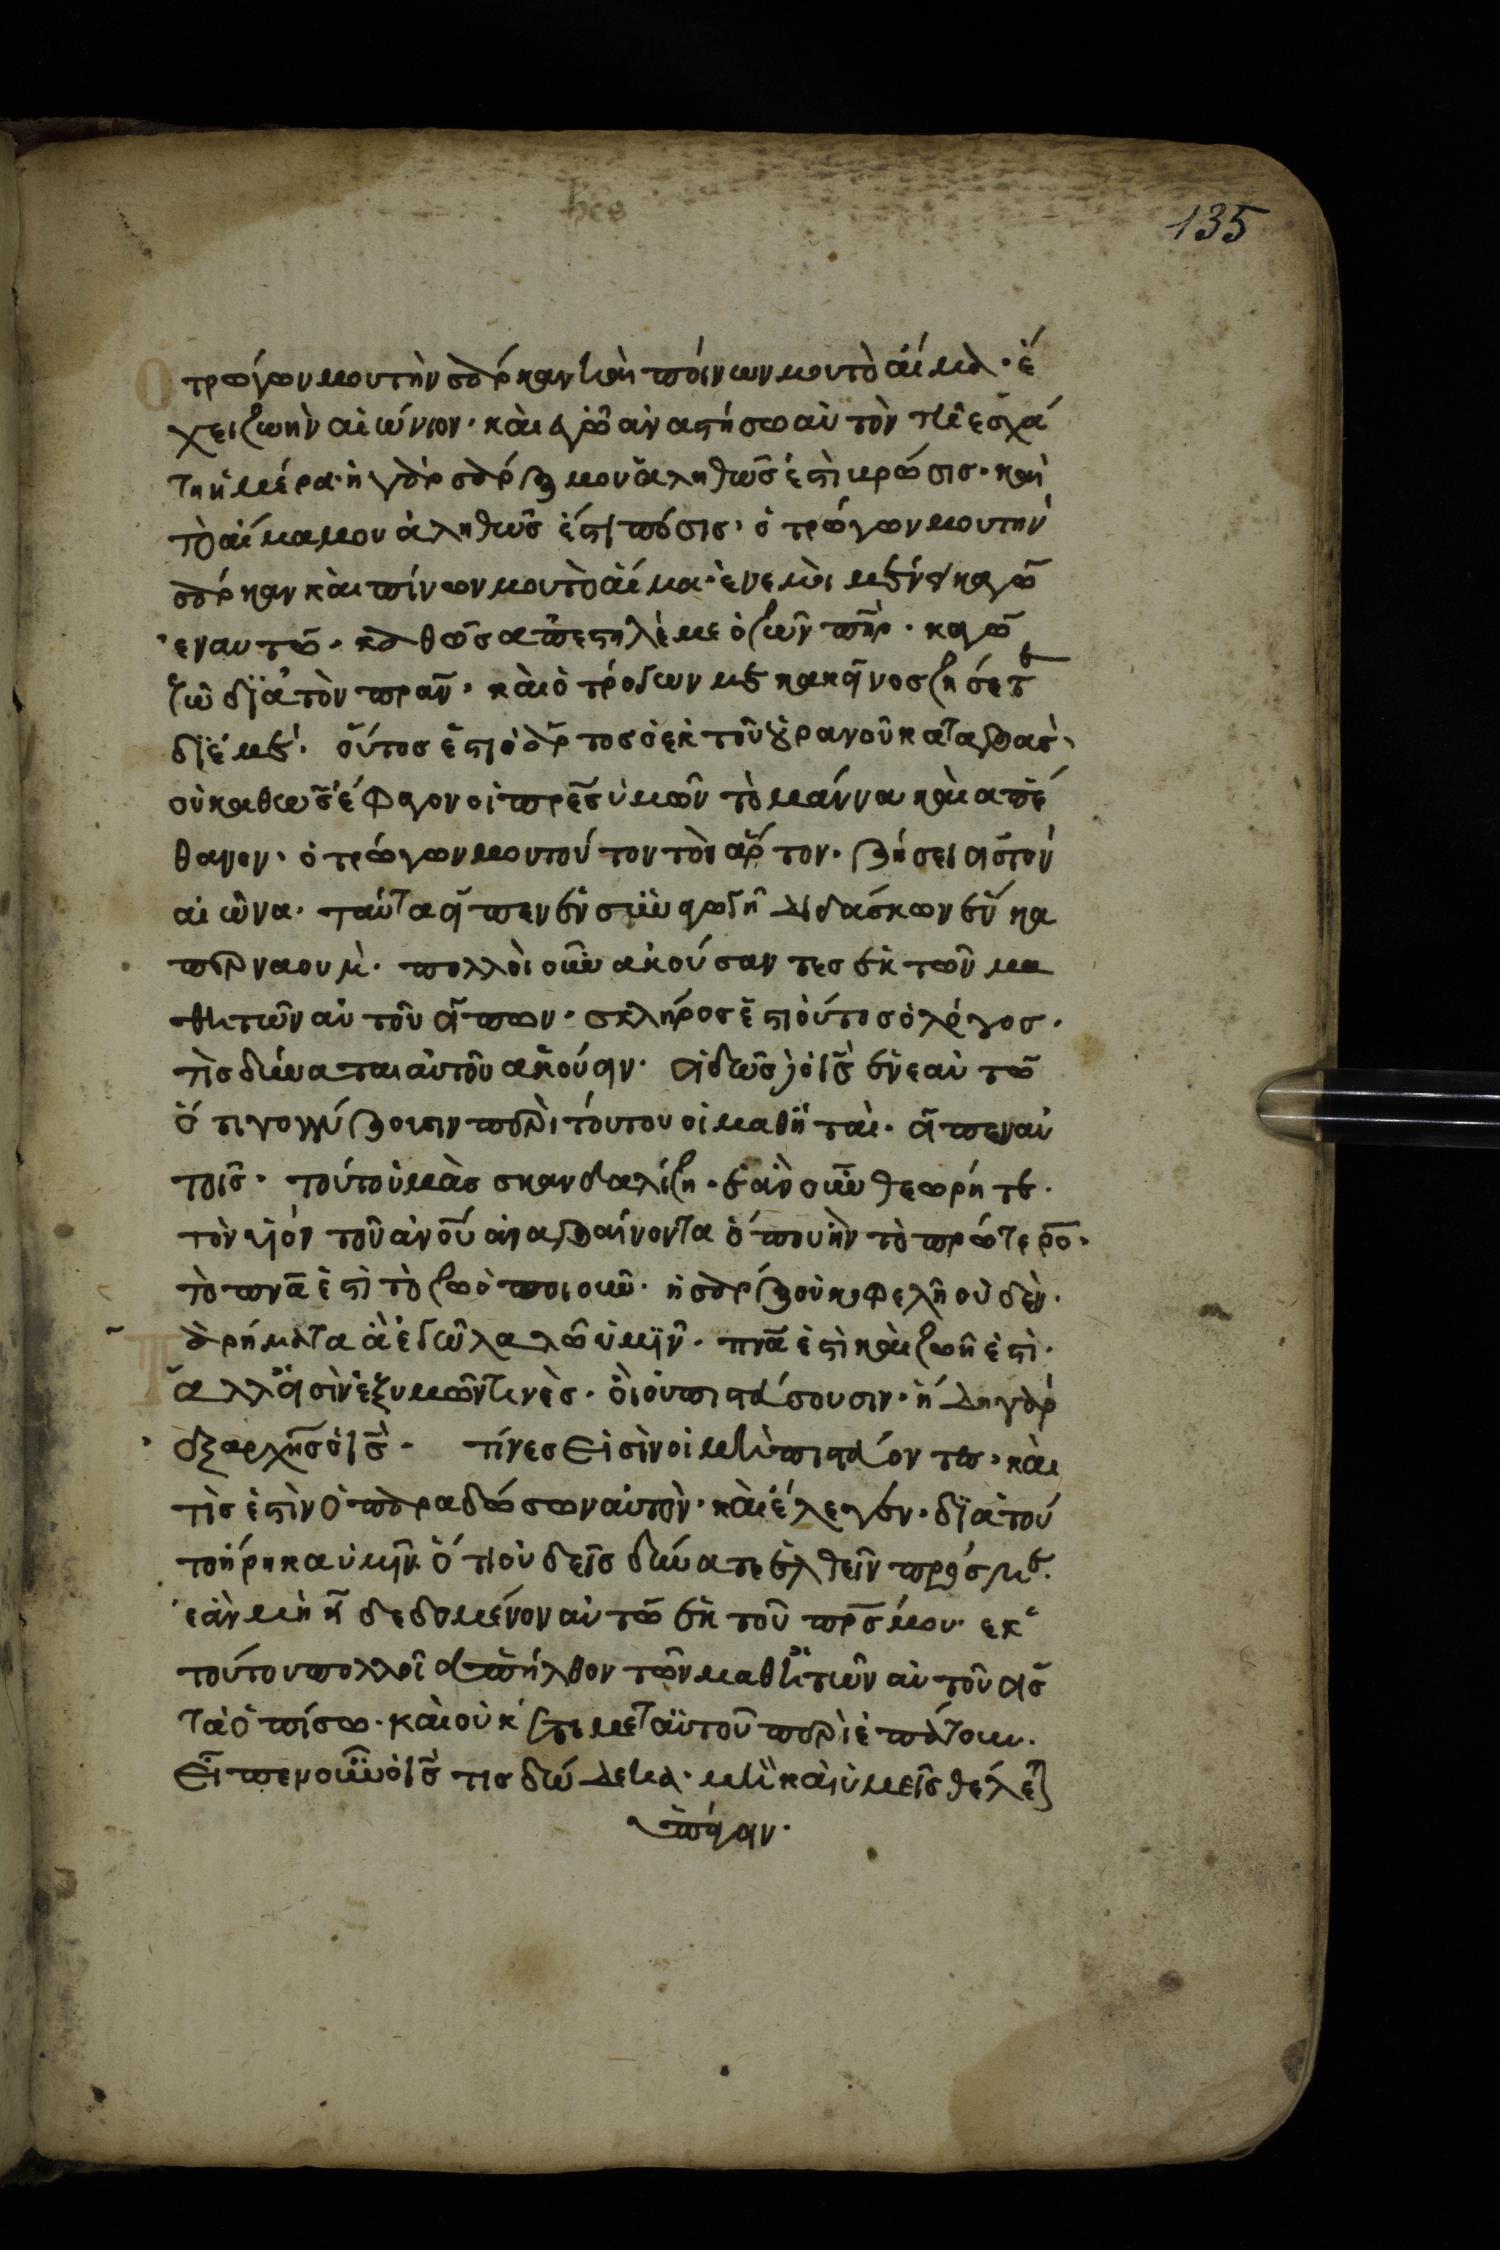 135
Ὁ τρώγων μου τὴν σάρκαν καὶ πίνων μου τὸ αἷμα· ἔ
χει ζωὴν αἰώνιον· καὶ ἐγὼ ἀναστήσω αὐτὸν τῆ ἐσχά
τη ἡμέρα· ἡ γὰρ σάρξ μου ἀληθῶς ἐστὶ βρώσις· καὶ
τὸ αἷμα μου ἀληθῶς ἐστὶ πόσις· ὁ τρώγων μου τὴν
σάρκαν καὶ πίνων μου τὸ αἷμα· ἐν ἐμοὶ μένει καγῶ
ἐν αυτῶ· καθῶς απέστηλέ με ὁ ζῶν πῆρ· καγῶ
ζῶ δϊὰ τὸν πραν· καὶ ὁ τρόγων με κακεῖνος ζήσετ
δϊ ἐμέ· οὗτος ἐστὶ ὁ ἄρτος ὁ ἐκ τοῦ οὐρανοῦ καταβάς·
οὐ καθῶς ἔφαγον οἱ πρες ὑμῶν τὸ μάννα καὶ απέ
θανον· ὁ τρώγων μου τούτον τὸν ἄρτον· ζήσει εἰς τὸν
αἰῶνα· ταῦτα εἶπεν ἐν συναγωγῆ διδάσκων ἐν κα
περναουμ· πολλοὶ οὖν ακούσαντες ἐκ τῶν μα
θητῶν αὐτοῦ εἶπων· σκληρός ἐστὶ οὑτος ὁ λόγος·
τὶς δύναται αὐτοῦ ακούειν· εἰδῶς ὁ ις ἐν εαὐτῶ
ὅτι γογγύζουσιν περὶ τούτου οἱ μαθηταὶ· εἶπεν αὐ
τοῖς· τούτο ὑμὰς σκανδαλίζη· ἐὰν οὖν θεωρήτε·
τὸν υἱόν τοῦ ανου ἀναβαίνοντα ὅπου ἦν τὸ πρώτερο·
τὸ πνα ἐστὶ τὸ ζωὸποιουν· ἡ σάρξ οὐκ οφελῆ οὐδέν·
τὰ ρήματα ἃ ἐγῶ λαλῶ ὑμῖν· πνα ἐστὶ καὶ ζωή ἐστὶ·
ἀλλ εἰσὶν ἐξ υμῶν τινὲς· οἳ οὐ πιστεύσουσιν· ἤδη γὰρ
ἐξ αρχῆς ὁ ις· τίνες εἰσὶν οἱ μὴ πιστεύοντες· καὶ
τὶς ἐστὶν ὁ παραδώσων αὐτὸν· καὶ ἔλεγεν· δϊὰ τού
το ἤρηκα ὑμῖν ὅτι οὐδεῖς δύνατε ἐλθεῖν πρός με·
ἐὰν μὴ ἦ δεδομένον αὐτῶ ἐκ τοῦ πρς μου· εκ
τούτου πολλοῖ απήλθον τῶν μαθητῶν αὐτοῦ εἰς
τὰ ὀπίσω· καὶ οὐκέτι μετ αὐτοῦ περὶεπάτουν·
Εἶπεν οὖν ὁ ις τις δώδεκα· μὴ καὶ ὑμεῖς θέλετε
ὑπάγειν·